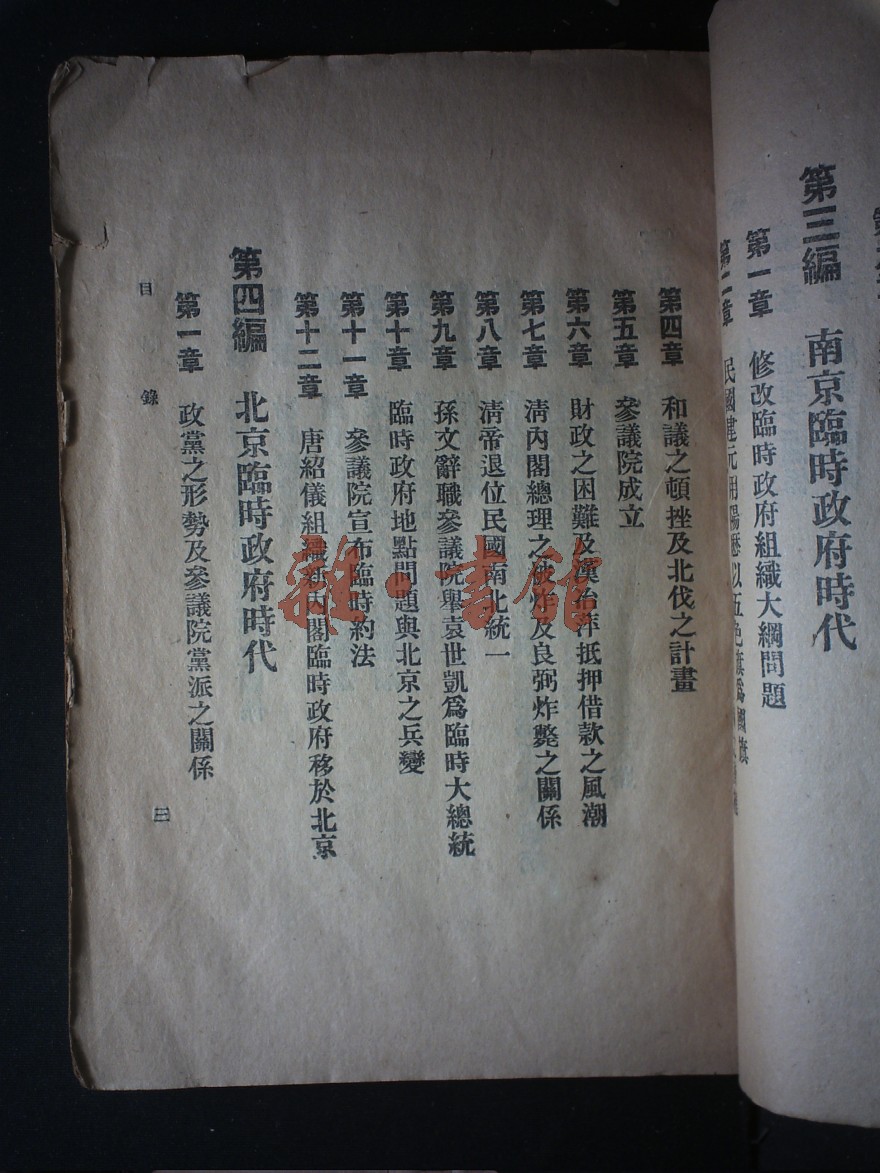 第三編　南京臨時政府時代
第一章　修改臨時政府組織大綱問題
第二章　民國建元用陽曆以五色旗爲國旗
第四章　和議之頓挫及北伐之計畫
第五章　參議院成立
第六章　財政之困難及漢冶萍抵押借款之風潮
第七章　淸內閣總理之被炸及良弼炸斃之關係
第八章　淸帝退位民國南北統一
第九章　孫文辭職參議院舉袁世凱爲臨時大總統
第十章　臨時政府地點問題與北京之兵變
第十一章　參議院宣布臨時約法
第十二章　唐紹儀組織新內閣臨時政府移於北京
第四編　北京臨時政府時代
第一章　政黨之形勢及參議院黨派之關係
目錄　三
雜·書館